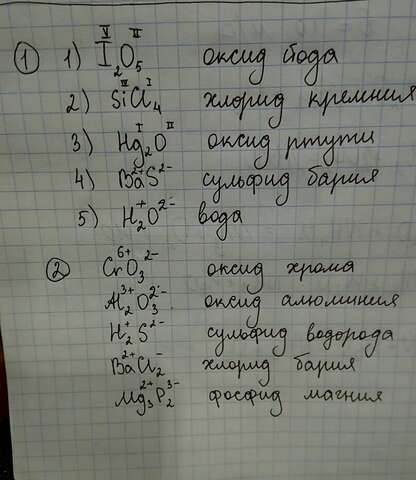 ① 1) I₂ⱽO₅ᴵᴵ оксид йода
2) SiᴵⱽCl₄ᴵ хлорид кремния
3) Hg₂ᴵOᴵᴵ оксид ртути
4) Ba²⁺S²⁻ сульфид бария
5) H₂⁺O²⁻ вода
② Cr⁶⁺O₃²⁻ оксид хрома
Al₂³⁺O₃²⁻ оксид алюминия
H₂⁺S²⁻ сульфид водорода
Ba²⁺Cl₂⁻ хлорид бария
Mg₃²⁺P₂³⁻ фосфид магния